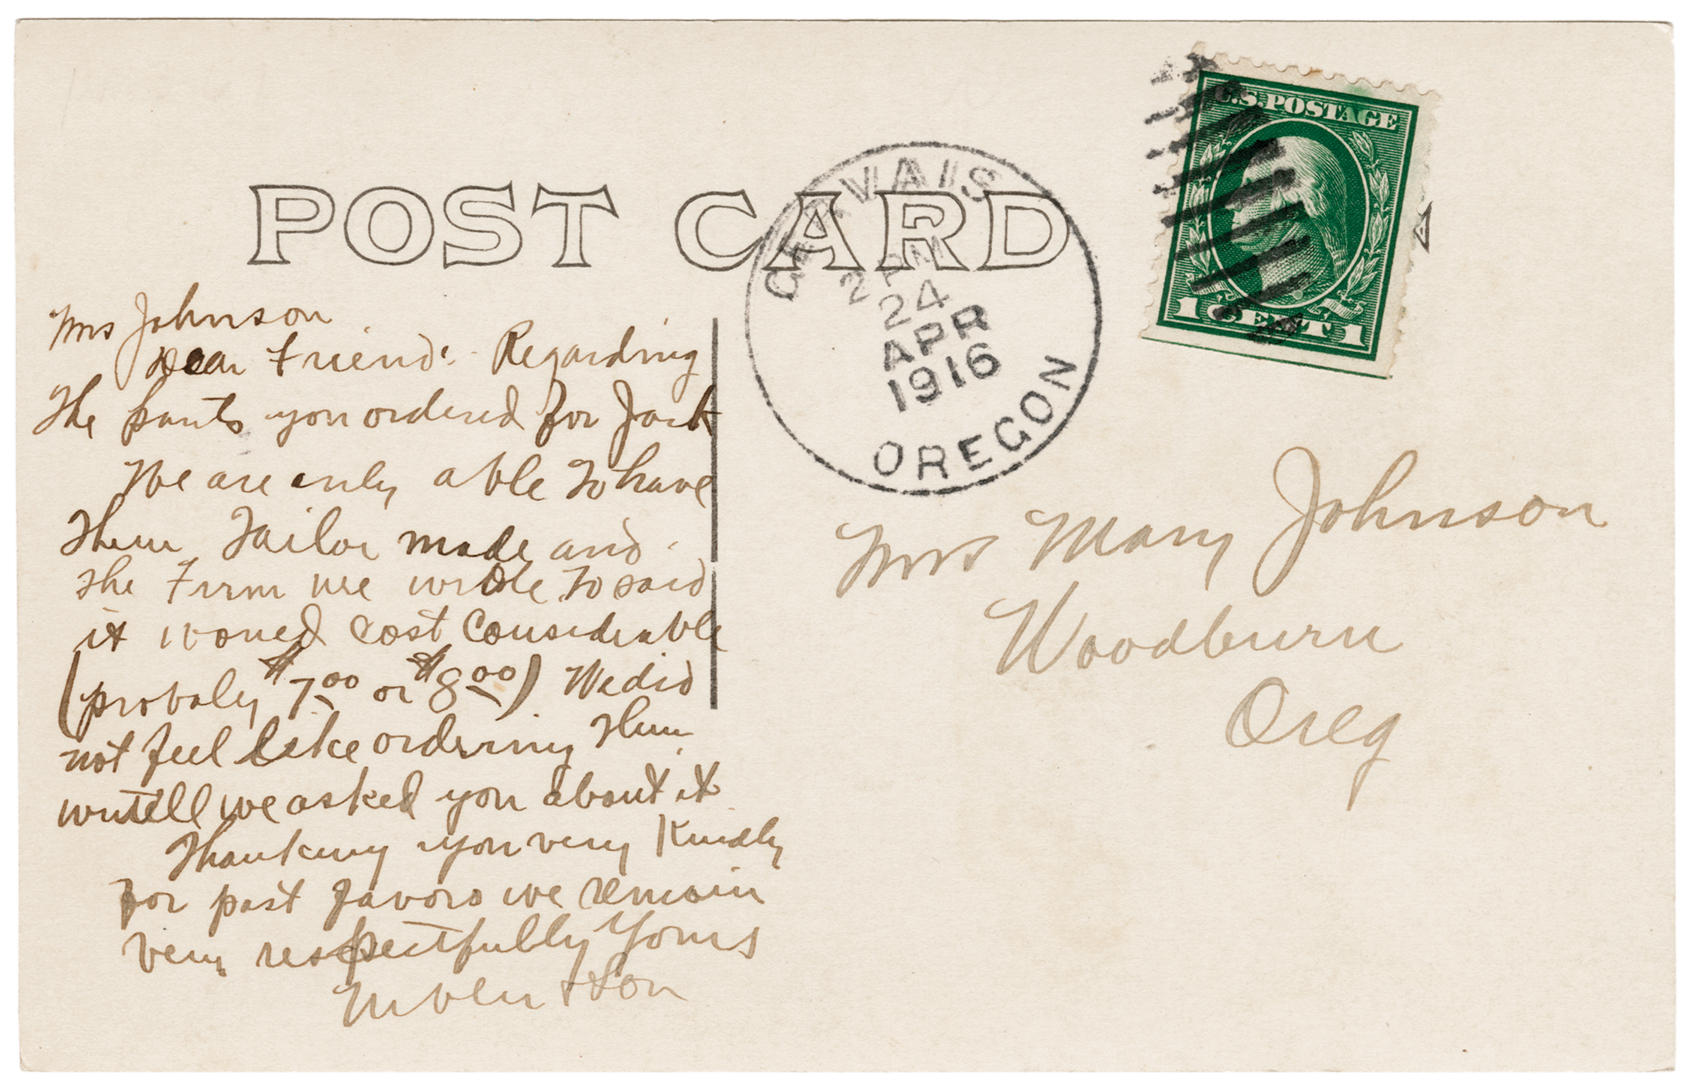 POST CARD
GERVAIS
2 PM
24
APR
1916
OREGON
U.S. POSTAGE
1 CENT 1
Mrs Johnson
Dear Friend: Regarding
The pants you ordered for Jack
We are only able To have
Them Tailor made and
The Firm we wrote To said
it woued cost Considerable
(probaly $7.00 or $8.00) We did
not feel Like ordering Them
untill we asked you about it
Thanking you very Kindly
For past favors we remain
very respectfully Yours
& Son
Mrs Mary Johnson
Woodburn
Oreg